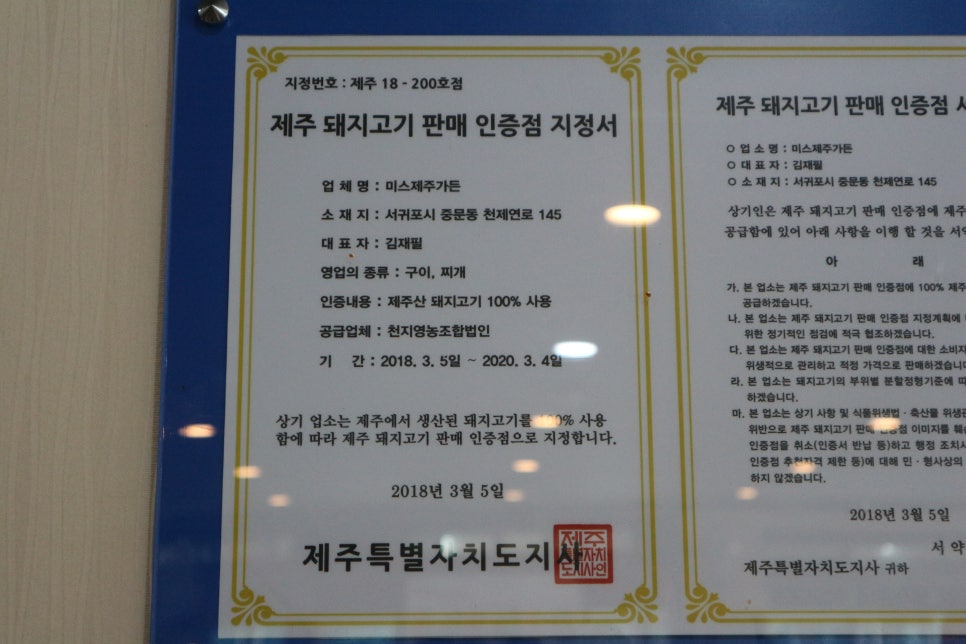 지정번호 : 제주 18 - 200호점
제주 돼지고기 판매 인증점 지정서
업 체 명 : 미스제주가든
소 재 지 : 서귀포시 중문동 천제연로 145
대 표 자 : 김재필
영업의 종류 : 구이, 찌개
인증내용 : 제주산 돼지고기 100% 사용
공급업체 : 천지영농조합법인
기 간 : 2018. 3. 5일 ~ 2020. 3. 4일
상기 업소는 제주에서 생산된 돼지고기를 100% 사용
함에 따라 제주 돼지고기 판매 인증점으로 지정합니다.
2018년 3월 5일
제주특별자치도지사
제주
특별자치
도지사인
제주 돼지고기 판매 인증점
○ 업 소 명 : 미스제주가든
○ 대 표 자 : 김재필
○ 소 재 지 : 서귀포시 중문동 천제연로 145
상기인은 제주 돼지고기 판매 인증점에 제주
공급함에 있어 아래 사항을 이행 할 것을
아 래
가. 본 업소는 제주 돼지고기 판매 인증점에 100% 제주
공급하겠습니다.
나. 본 업소는 제주 돼지고기 판매 인증점 지정계획에
위한 정기적인 점검에 적극 협조하겠습니다.
다. 본 업소는 제주 돼지고기 판매 인증점에 대한 소비자
위생적으로 관리하고 적정 가격으로 판매하겠습니
라. 본 업소는 돼지고기의 부위별 분할정형기준에 따
하겠습니다.
마. 본 업소는 상기 사항 및 식품위생법 · 축산물 위생관
위반으로 제주 돼지고기 판매 인증점 이미지를
인증점을 취소(인증서 반납 등)하고 행정 조치
인증점 추천자격 제한 등)에 대해 민 · 형사상의
하지 않겠습니다.
2018년 3월 5일
서 약
제주특별자치도지사 귀하